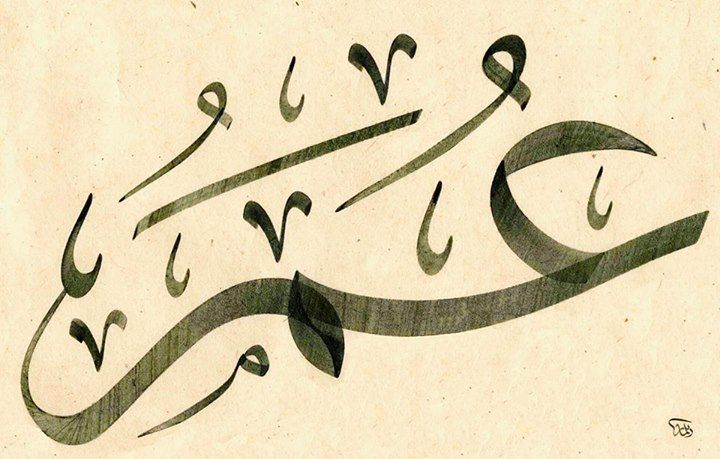 عُمَرُ